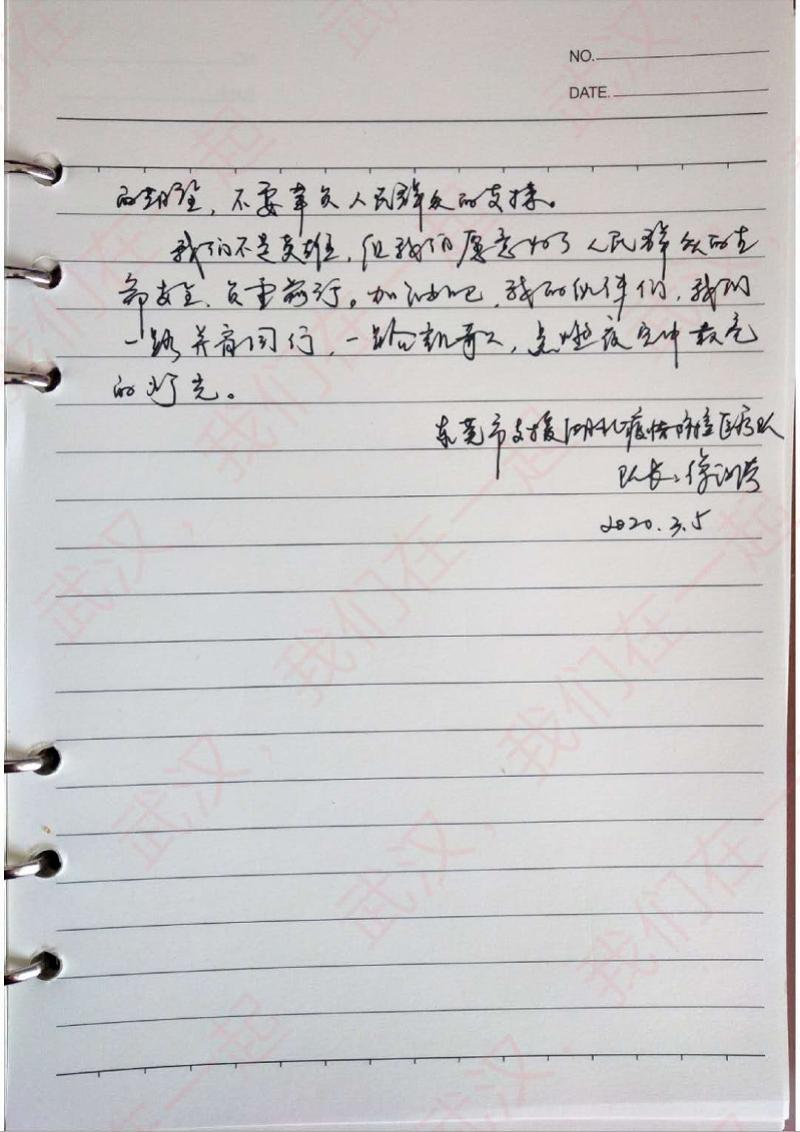 NO.
DATE.
的期望，不要辜负人民群众的支持。
我们不是英雄，但我们愿意为了人民群众的
安全，负重前行。加油吧，我的伙伴们，我们
一路并肩同行，一路高歌，点燃夜空中最亮
的灯光。
东莞市支援湖北疫情防控医疗队
队长：徐
2020.3.5
武汉，我们在一起
武汉，我们在一起
武汉，我们在一起